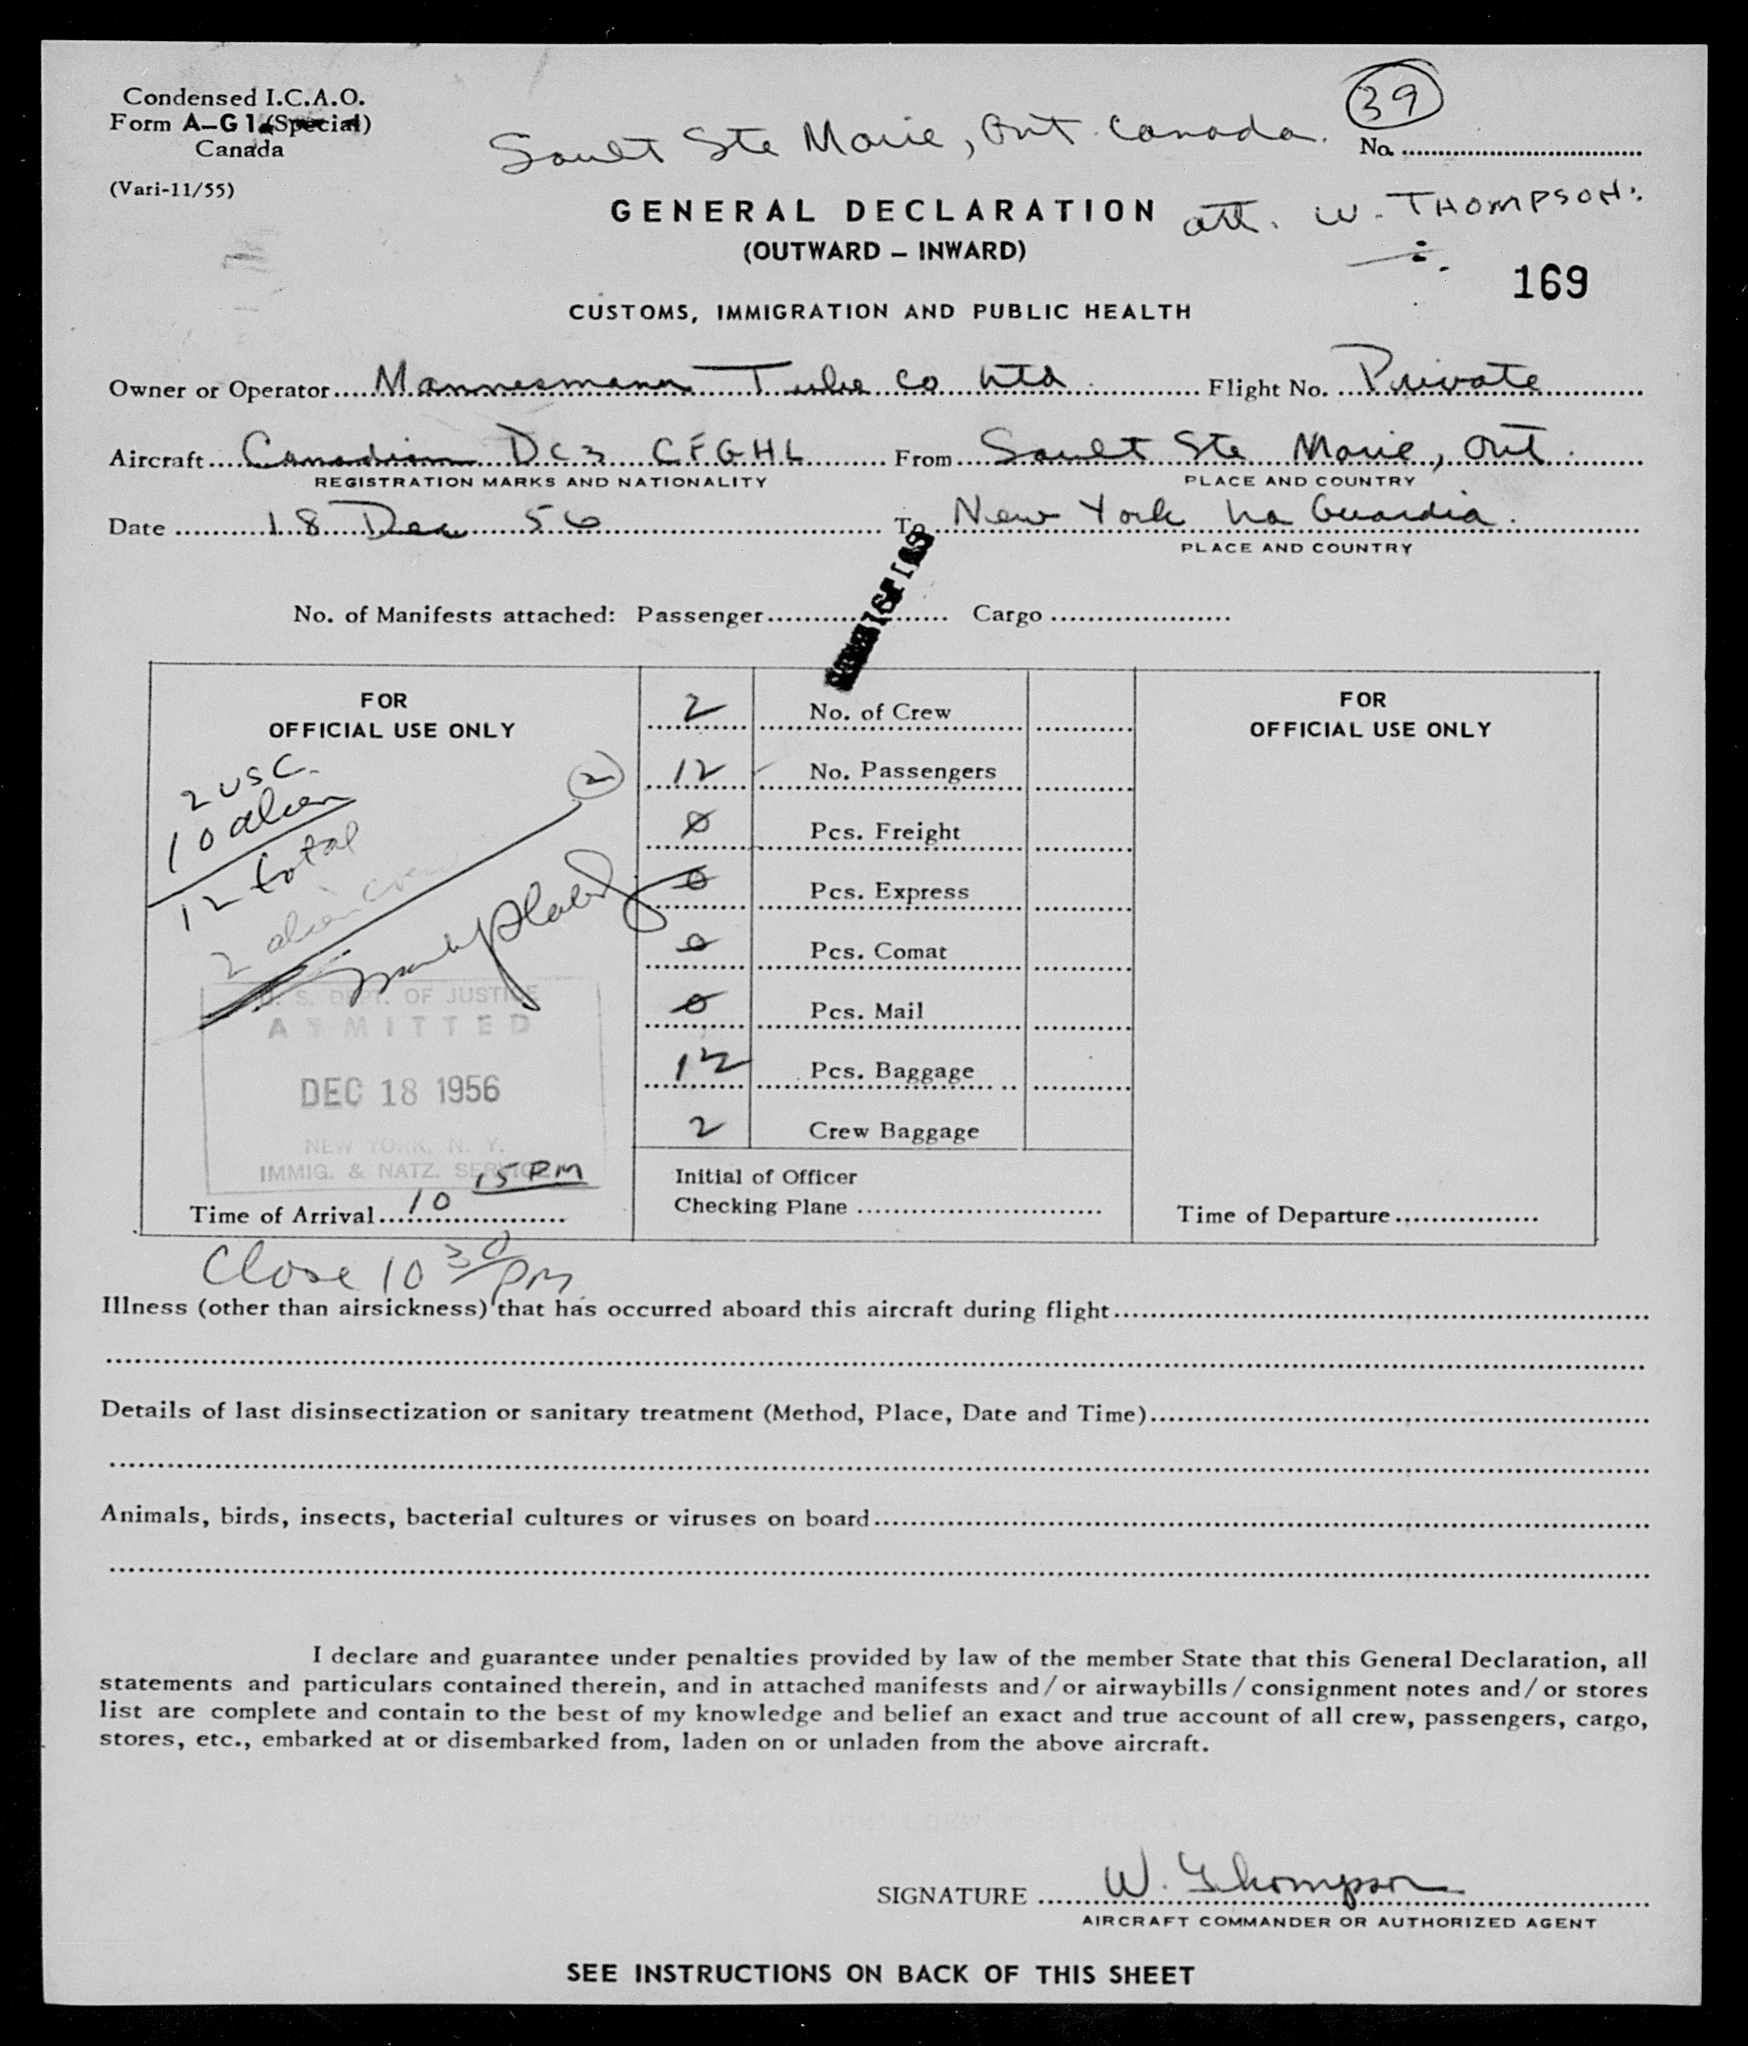 Condensed I.C.A.O.
Form A–G 1 (Special)
Canada
(Vari-11/55)
Sault Ste Marie, Ont. Canada.
39
No. ........
GENERAL DECLARATION
att. W. THOMPSON.
(OUTWARD – INWARD)
169
CUSTOMS, IMMIGRATION AND PUBLIC HEALTH
Owner or Operator.... Mannesmann Tube Co Ltd .... Flight No. ... Private
Aircraft.... Canadian DC3 CFGHL .... From.... Sault Ste Marie, Ont.
REGISTRATION MARKS AND NATIONALITY PLACE AND COUNTRY
Date .... 18 Dec 56 .... To New York La Guardia.
PLACE AND COUNTRY
No. of Manifests attached: Passenger.................... Cargo ....................
FOR
OFFICIAL USE ONLY
2 USC.
10 alien
12 total
2 alien crew
2
U. S. DEPT. OF JUSTICE
ADMITTED
DEC 18 1956
NEW YORK, N. Y.
IMMIG. & NATZ. SERVICE
Time of Arrival.... 10 15 PM
Close 10 30 PM
2 No. of Crew
12 No. Passengers
0 Pcs. Freight
0 Pcs. Express
0 Pcs. Comat
0 Pcs. Mail
12 Pcs. Baggage
2 Crew Baggage
Initial of Officer
Checking Plane ..........................
FOR
OFFICIAL USE ONLY
Time of Departure................
Illness (other than airsickness) that has occurred aboard this aircraft during flight........
Details of last disinsectization or sanitary treatment (Method, Place, Date and Time)........
Animals, birds, insects, bacterial cultures or viruses on board........
I declare and guarantee under penalties provided by law of the member State that this General Declaration, all
statements and particulars contained therein, and in attached manifests and/or airwaybills/consignment notes and/or stores
list are complete and contain to the best of my knowledge and belief an exact and true account of all crew, passengers, cargo,
stores, etc., embarked at or disembarked from, laden on or unladen from the above aircraft.
SIGNATURE .... W. Thompson
AIRCRAFT COMMANDER OR AUTHORIZED AGENT
SEE INSTRUCTIONS ON BACK OF THIS SHEET